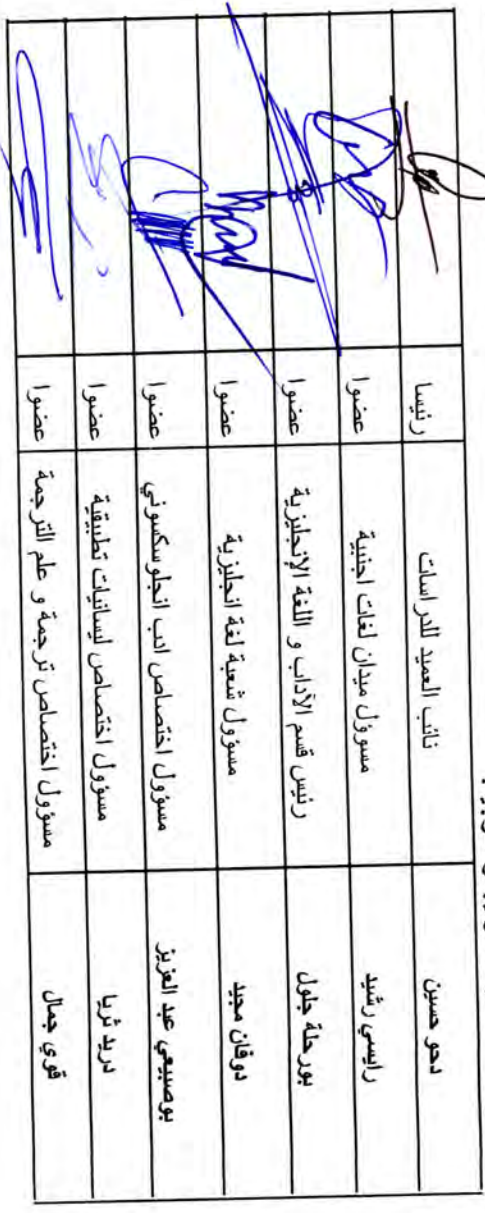 دحو حسين نائب العميد للدراسات رئيسا
رايسي رشيد مسؤول ميدان لغات اجنبية عضوا
بورحلة جلول رئيس قسم الآداب و اللغة الإنجليزية عضوا
دوفان مجيد مسؤول شعبة لغة انجليزية عضوا
بوصبيعي عبد العزيز مسؤول اختصاص ادب انجلوسكسوني عضوا
دريد ثريا مسؤول اختصاص لسانيات تطبيقية عضوا
قوي جمال مسؤول اختصاص ترجمة و علم الترجمة عضوا